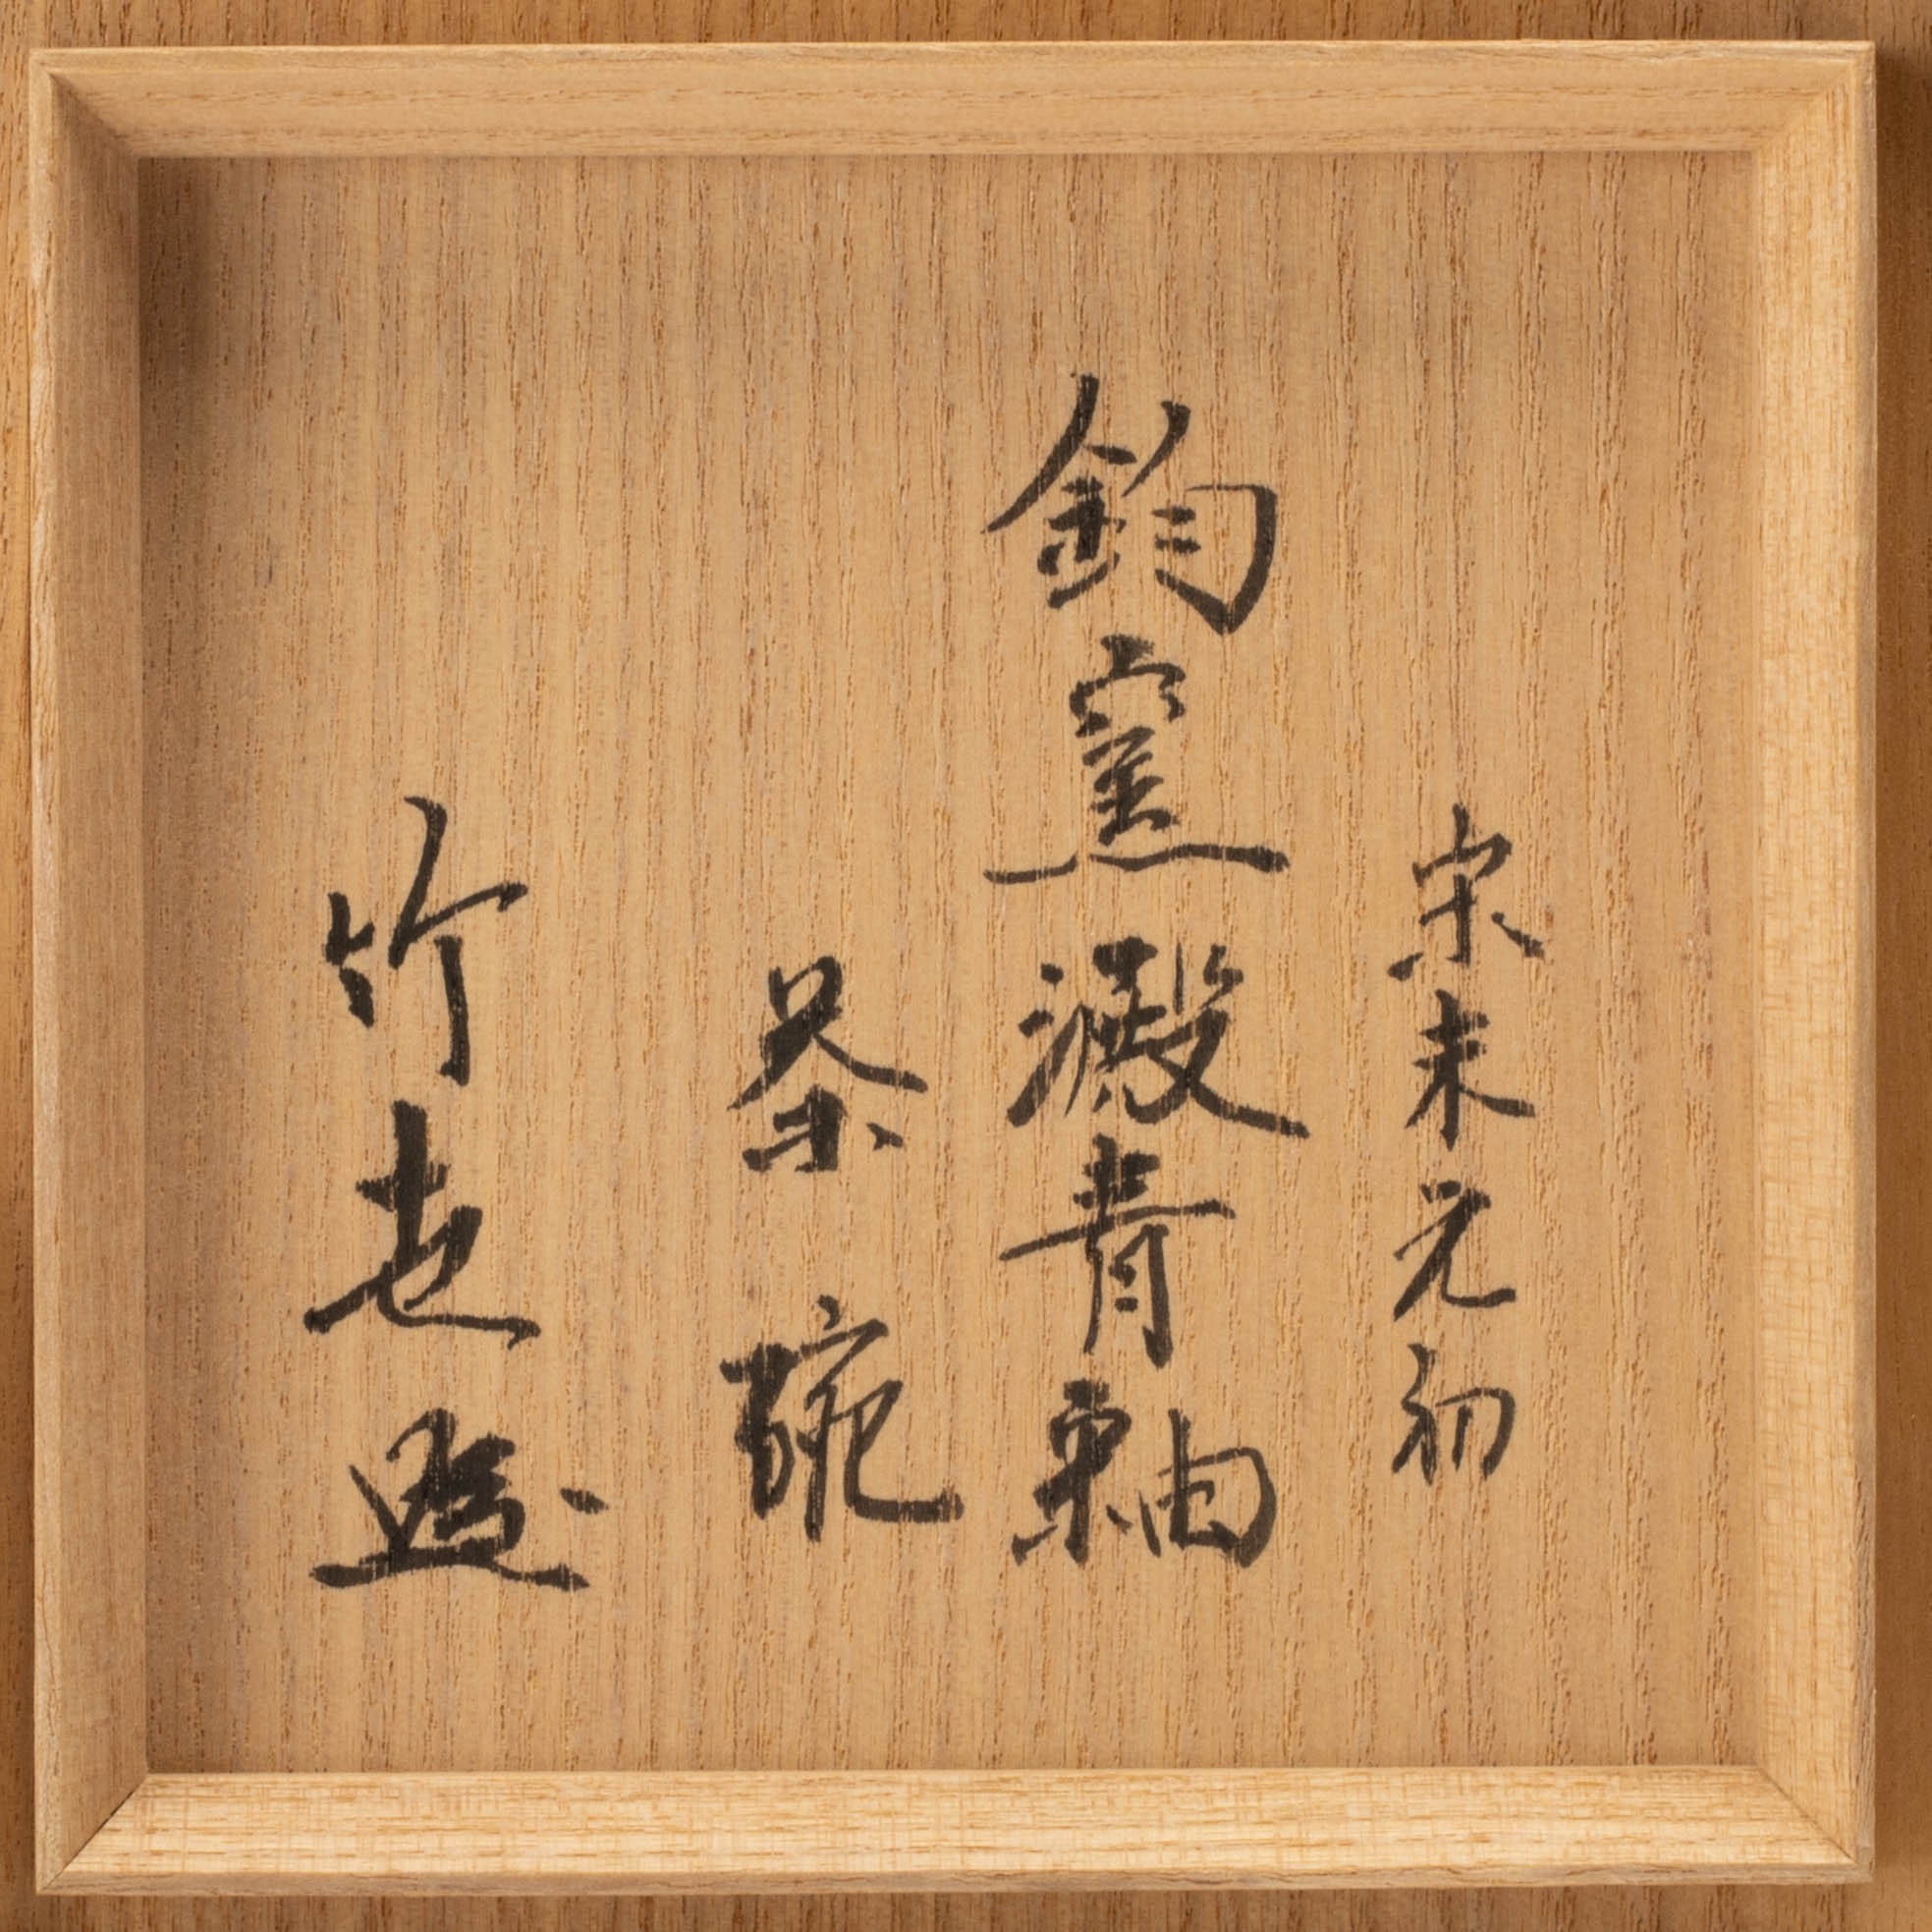 宋末元初
鈞窯澱青釉
茶碗
竹志